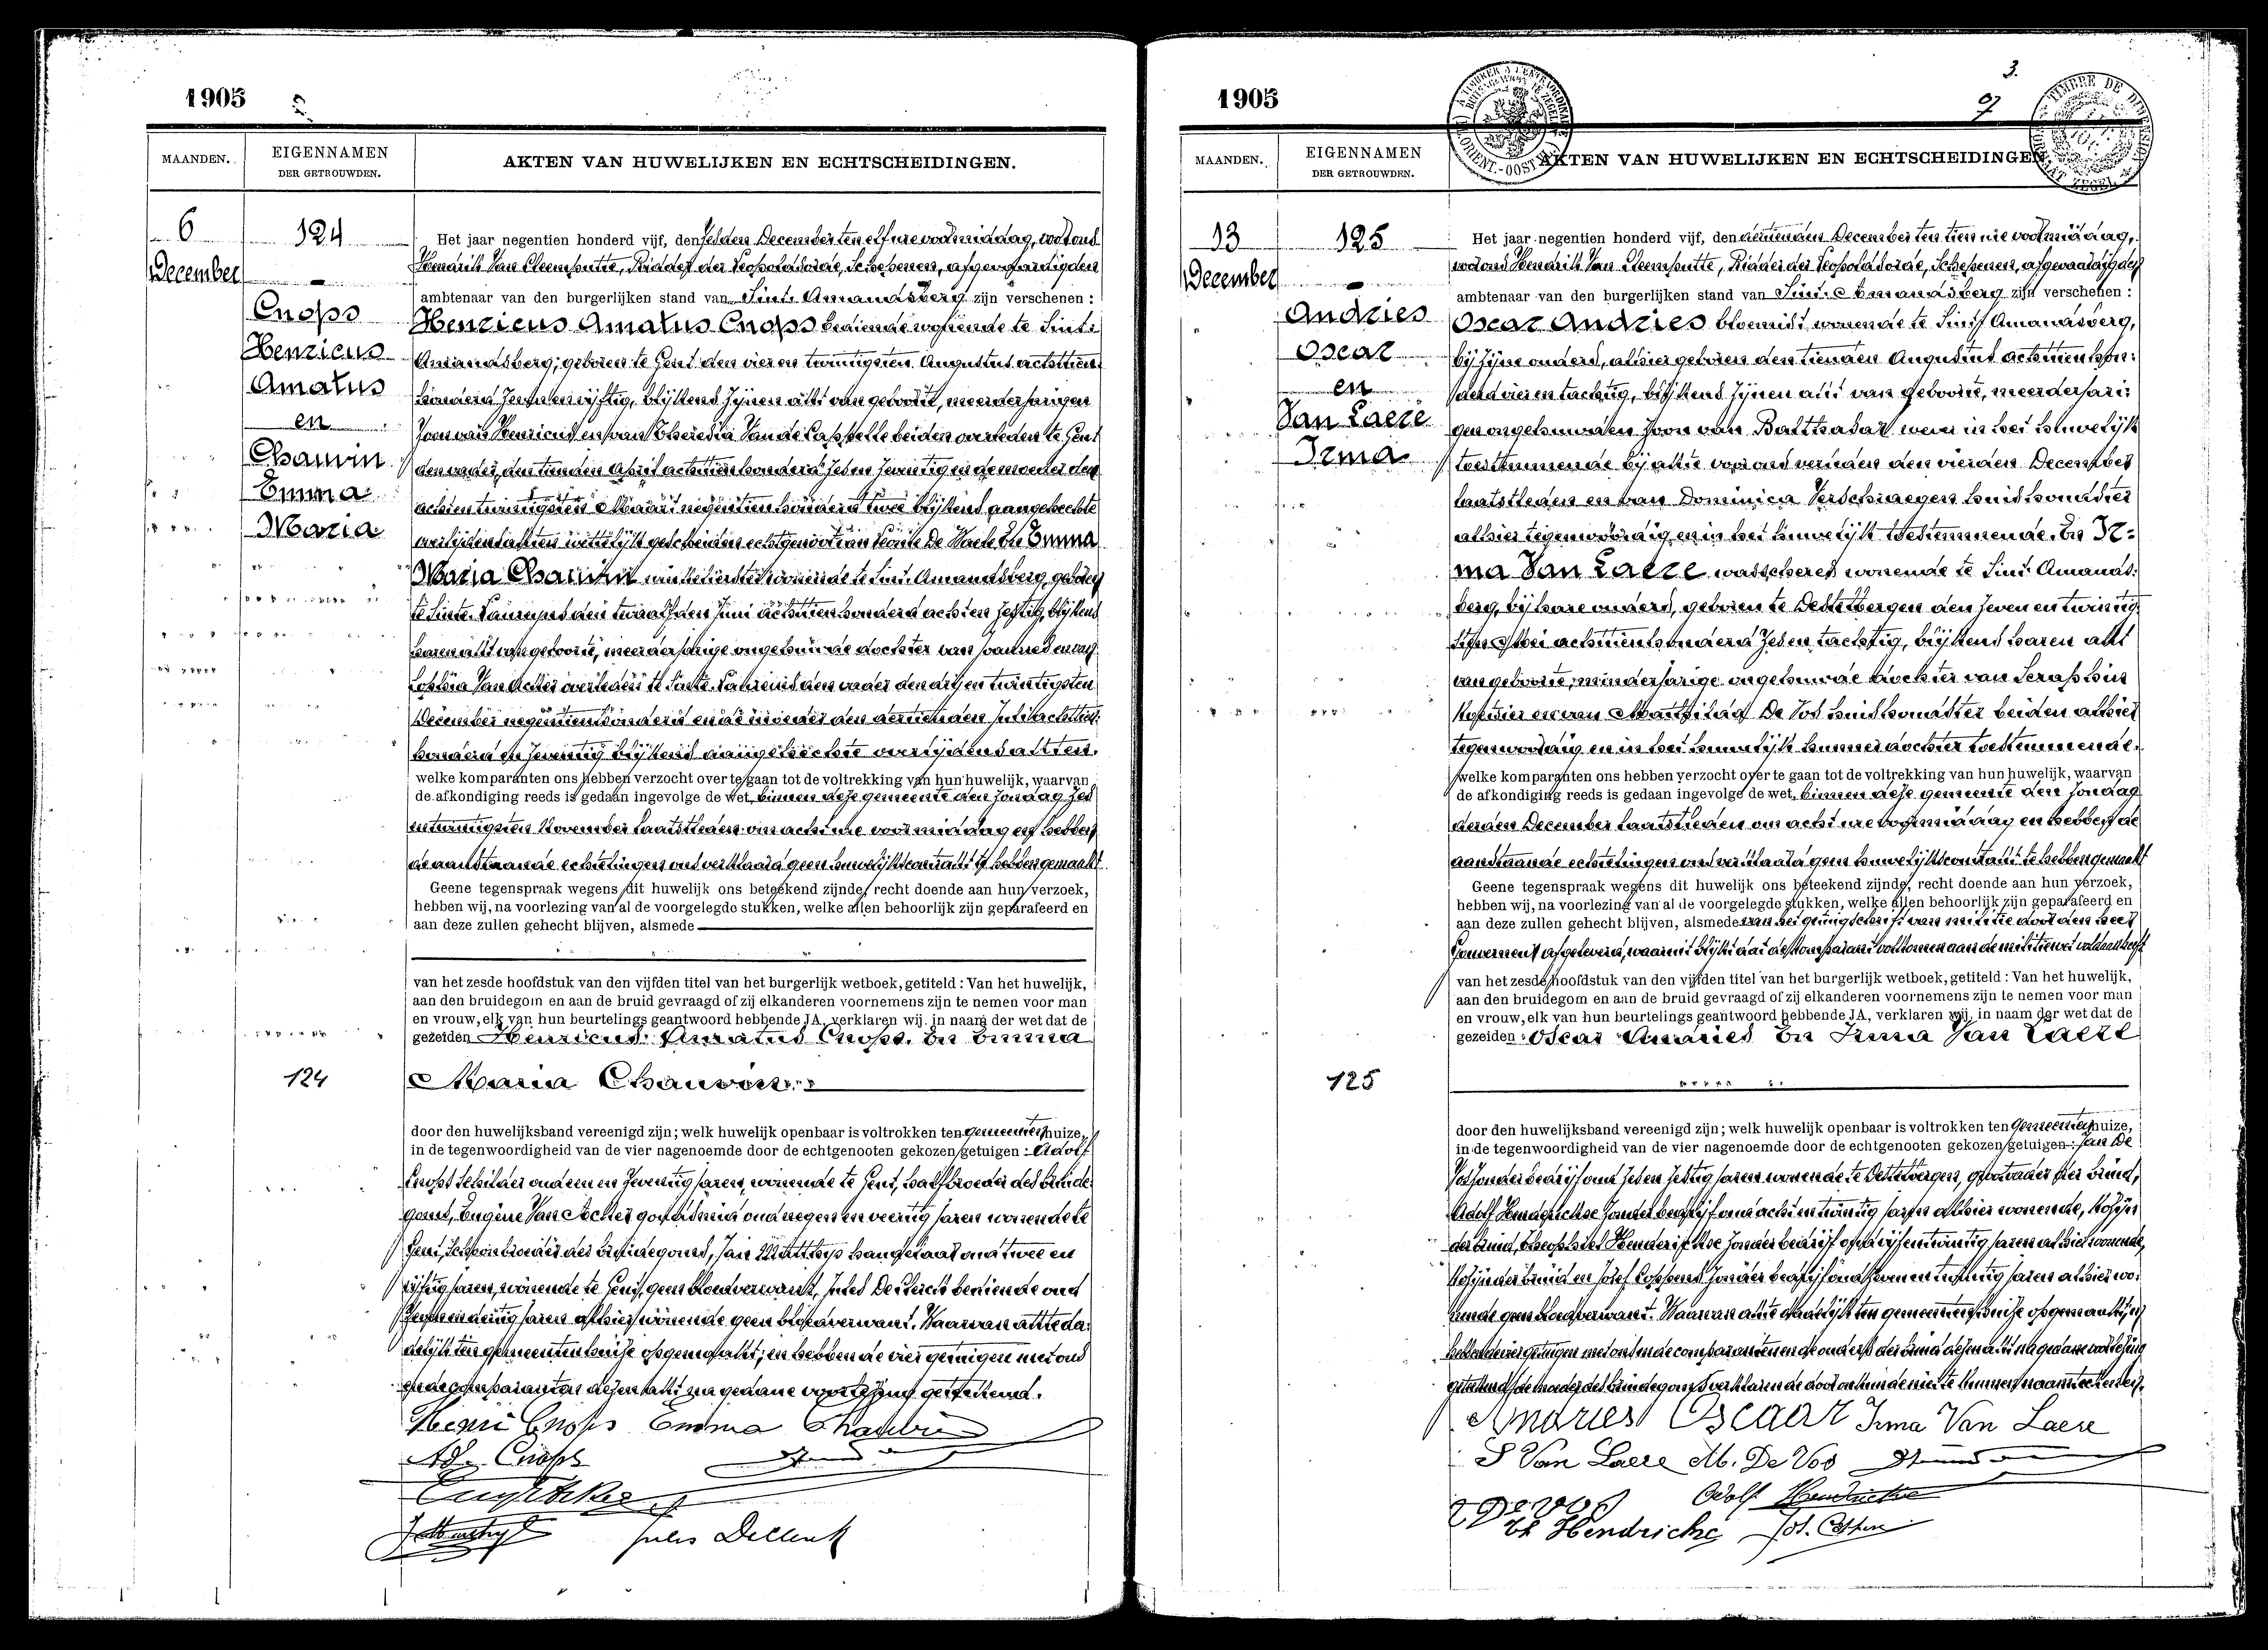 1905
MAANDEN.
EIGENNAMEN
DER GETROUWDEN.
AKTEN VAN HUWELIJKEN EN ECHTSCHEIDINGEN.
6
December
124
Cnops
Henricus
Amatus
en
Chauvin
Emma
Maria
Het jaar negentien honderd vijf, den zesden December ten elf ure voormiddag, voor ons
Hendrik Van Cleemputte, Ridder der Leopoldsorde, Schepenen, afgevaardigden
ambtenaar van den burgerlijken stand van Sint Amandsberg zijn verschenen :
Henricus Amatus Cnops bediende wonende te Sint
Amandsberg, geboren te Gent den vier en twintigsten Augustus achttien
honderd zes en vijftig, blijkens zijnen akt van geboorte, meerderjarigen
zoon van Henricus en van Theresia Van de Cappelle beiden overleden te Gent
den vader den tienden April achttien honderd zes en zeventig en de moeder den
acht en twintigsten Maart negentien honderd twee blijkens aangehechte
overlijdensakten wettelijk gescheiden echtgenoot van De En Emma
Maria Chauvin winkelierster wonende te Sint Amandsberg, geboren
te Sinte Laureins den twaalfden Juni achttien honderd acht en zestig, blijkens
haren akt van geboorte, meerderjarige ongehuwde dochter van Joannes en van
Sophia Van Acker overleden te Sinte Laureins den vader den drij en twintigsten
December negentien honderd en de moeder den dertienden Juli achttien
honderd en zeventig blijkens aangehechte overlijdensakten.
welke komparanten ons hebben verzocht over te gaan tot de voltrekking van hun huwelijk, waarvan
de afkondiging reeds is gedaan ingevolge de wet, binnen deze gemeente den zondag zes
en twintigsten November laatstleden om acht ure voormiddag en hebben
de aanstaande echtelingen ons verklaard geen huwelijkscontrakt te hebben gemaakt.
Geene tegenspraak wegens dit huwelijk ons beteekend zijnde, recht doende aan hun verzoek,
hebben wij, na voorlezing van al de voorgelegde stukken, welke allen behoorlijk zijn geparafeerd en
aan deze zullen gehecht blijven, alsmede
van het zesde hoofdstuk van den vijfden titel van het burgerlijk wetboek, getiteld : Van het huwelijk,
aan den bruidegom en aan de bruid gevraagd of zij elkanderen voornemens zijn te nemen voor man
en vrouw, elk van hun beurtelings geantwoord hebbende JA, verklaren wij, in naam der wet dat de
gezeiden Henricus Amatus Cnops. En Emma
124
Maria Chauvin
door den huwelijksband vereenigd zijn; welk huwelijk openbaar is voltrokken ten gemeentenhuize,
in de tegenwoordigheid van de vier nagenoemde door de echtgenooten gekozen getuigen : Adolf
Cnops schilder oud een en zeventig jaren, wonende te Gent, halfbroeder des bruide
goms, Eugène Van Acker goudsmid oud negen en veertig jaren wonende te
Gent, schoonbroeder des bruidegoms, Jan Matthys hangelaar oud twee en
vijftig jaren, wonende te Gent, geen bloedverwant, Jules De Clerck bediende oud
en dertig jaren alhier wonende geen bloedverwant. Waarvan akte da
delijk ten gemeentenhuize opgemaakt; en hebben de vier getuigen met ons
en de comparanten dezen akt na gedane voorlezing geteekend.
Henri Cnops Emma Chauvin
Ad. Cnops
Jules De Clerck
1905
3.
MAANDEN.
EIGENNAMEN
DER GETROUWDEN.
AKTEN VAN HUWELIJKEN EN ECHTSCHEIDINGEN
13
December
125
Andries
Oscar
en
Van Laere
Irma
Het jaar negentien honderd vijf, den dertienden December ten tien ure voormiddag,
voor ons Hendrik Van Cleemputte, Ridder der Leopoldsorde, Schepenen, afgevaardigden
ambtenaar van den burgerlijken stand van Sint Amandsberg zijn verschenen :
Oscar Andries bloemist wonende te Sint Amandsberg,
bij zijne ouders, alhier geboren den tienden Augustus achttien hon
derd vier en tachtig, blijkens zijnen akt van geboorte, meerderjari
gen ongehuwden zoon van Balthasar wever in het huwelijk
toestemmende bij akte voor ons verleden den vierden December
laatstleden en van Dominica Verschraegen huishoudster
alhier tegenwoordig en in het huwelijk toestemmende. En Ir-
ma Van Laere waschster wonende te Sint Amands
berg, bij hare ouders, geboren te Destelbergen den zeven en twintig
sten Mei achttien honderd zes en tachtig, blijkens haren akt
van geboorte, minderjarige ongehuwde dochter van Seraphus
hovenier en van Mathilda De Vos huishoudster beiden alhier
tegenwoordig en in het huwelijk hunner dochter toestemmende.
welke komparanten ons hebben verzocht over te gaan tot de voltrekking van hun huwelijk, waarvan
de afkondiging reeds is gedaan ingevolge de wet, binnen deze gemeente den zondag
derden December laatstleden om acht ure voormiddag en hebben de
aanstaande echtelingen ons verklaard geen huwelijkscontrakt te hebben gemaakt
Geene tegenspraak wegens dit huwelijk ons beteekend zijnde, recht doende aan hun verzoek,
hebben wij, na voorlezing van al de voorgelegde stukken, welke allen behoorlijk zijn geparafeerd en
aan deze zullen gehecht blijven, alsmede van het getuigschrift van militie door den heer
Gouverneur afgeleverd, waaruit blijkt dat de komparant voldoen aan de militiewet voldaan heeft
van het zesde hoofdstuk van den vijfden titel van het burgerlijk wetboek, getiteld : Van het huwelijk,
aan den bruidegom en aan de bruid gevraagd of zij elkanderen voornemens zijn te nemen voor man
en vrouw, elk van hun beurtelings geantwoord hebbende JA, verklaren wij, in naam der wet dat de
gezeiden : Oscar Andries En Irma Van Laere
125
door den huwelijksband vereenigd zijn; welk huwelijk openbaar is voltrokken ten gemeentenhuize,
in de tegenwoordigheid van de vier nagenoemde door de echtgenooten gekozen getuigen : Jan De
Vos zonder bedrijf oud zes en zestig jaren wonende te Destelbergen, grootvader der bruid,
Adolf Henderickse zonder bedrijf oud acht en twintig jaren alhier wonende, kozijn
der bruid, Theophiel Henderickse zonder bedrijf oud drij en twintig jaren alhier wonende,
kozijn der bruid en Jozef Coppens zonder bedrijf oud zeven en twintig jaren alhier wo-
nende geen bloedverwant. Waarvan akte dadelijk ten gemeentenhuize opgemaakt, en
hebben de vier getuigen met ons en de comparanten en de ouders der bruid dezen akt na gedane voorlezing
geteekend, de moeder des bruidegoms verklarende door onkunde niet te kunnen naamteekenen.
Andries Oscar Irma Van Laere
S Van Laere M. De Vos
Adolf Hendrickse
De Vos
Th Hendrickse